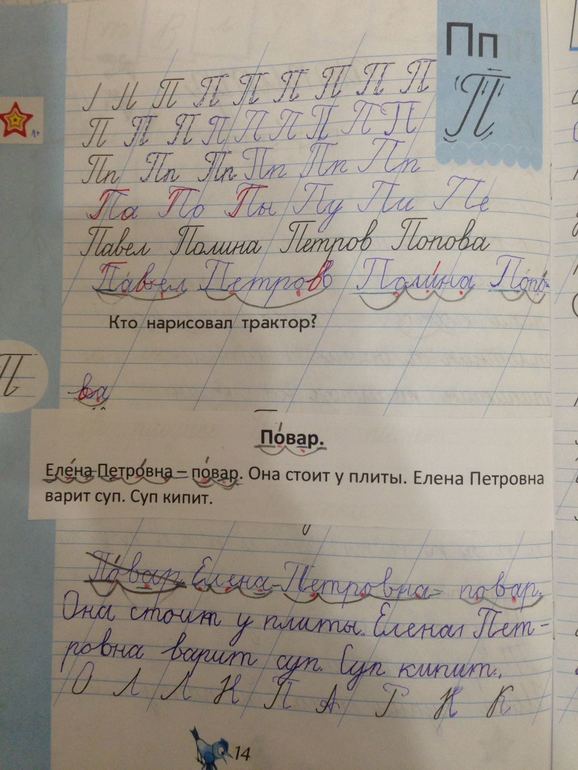 Пп
П
П П П П П П П
П П П П П П П П П
Пп Пп Пп Пп Пп Пп
Па По Пы Пу Пи Пе
Павел Полина Петров Попова
Павел Петров Полина Попо-
Кто нарисовал трактор?
П
ва
По́вар.
Еле́на Петро́вна – по́вар. Она стоит у плиты. Елена Петровна
варит суп. Суп кипит.
Повар Елена Петровна - повар.
Она стоит у плиты. Елена Пет-
ровна варит суп. Суп кипит.
О Л Л Н П А Р Н К
14